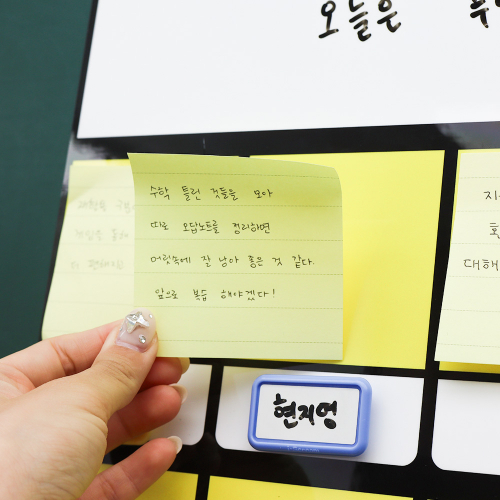 오늘은
수학 틀린 것들을 모아
따로 오답노트를 정리하면
머릿속에 잘 남아 좋은 것 같다.
앞으로 복습 해야겠다!
지
대해
현지영